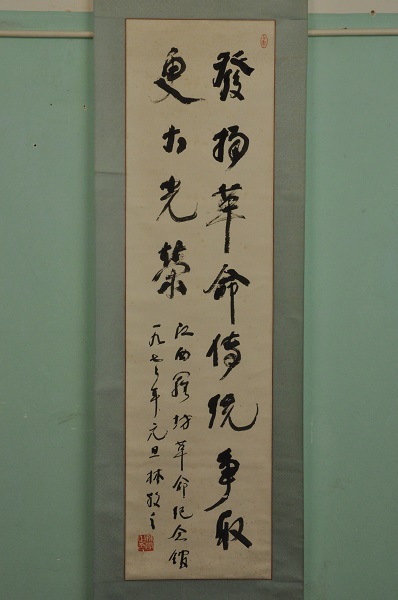 發揚革命傳統爭取
更大光榮
江西羅坊革命紀念館
一九七七年元旦林散之